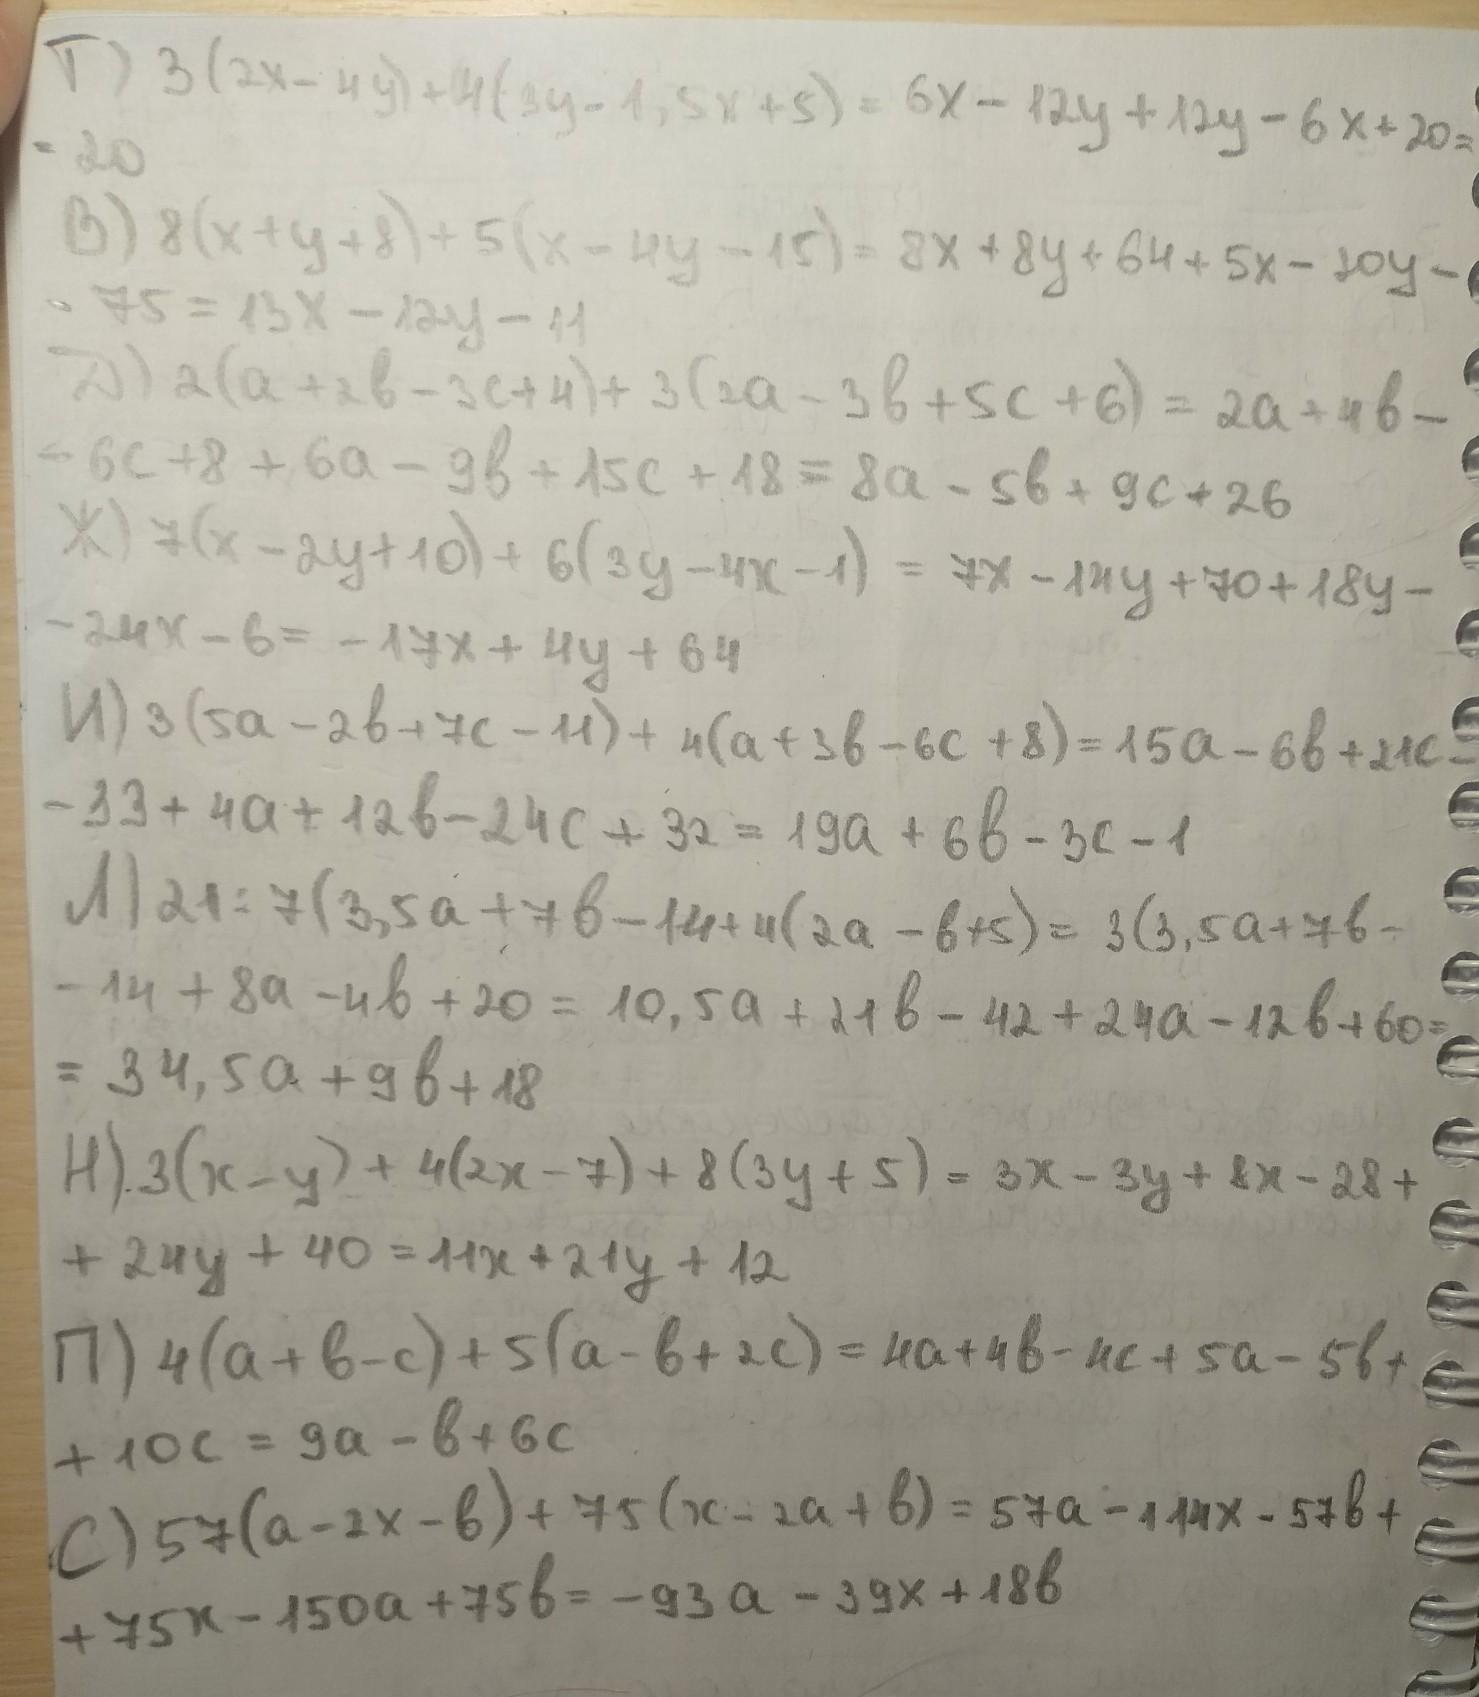 Г) 3(2x-4y)+4(3y-1,5x+5)= 6x-12y+12y-6x+20=
= 20
В) 8(x+y+8)+5(x-4y-15)= 8x+8y+64+5x-20y-
- 75 = 13x-12y-11
Д) 2(a+2b-3c+4)+3(2a-3b+5c+6)= 2a+4b-
- 6c+8+6a-9b+15c+18= 8a-5b+9c+26
Ж) 7(x-2y+10)+6(3y-4x-1) = 7x-14y+70+18y-
-24x-6= -17x+4y+64
И) 3(5a-2b+7c-11)+4(a+3b-6c+8)=15a-6b+21c-
-33+4a+12b-24c+32=19a+6b-3c-1
Л) 21:7(3,5a+7b-14+4(2a-b+5)= 3(3,5a+7b-
-14+8a-4b+20= 10,5a+21b-42+24a-12b+60=
= 34,5a+9b+18
Н) 3(x-y)+4(2x-7)+8(3y+5)= 3x-3y+8x-28+
+24y+40=11x+21y+12
П) 4(a+b-c)+5(a-b+2c)=4a+4b-4c+5a-5b+
+10c = 9a-b+6c
С) 57(a-2x-b)+75(x-2a+b)=57a-114x-57b+
+75x-150a+75b= -93a-39x+18b